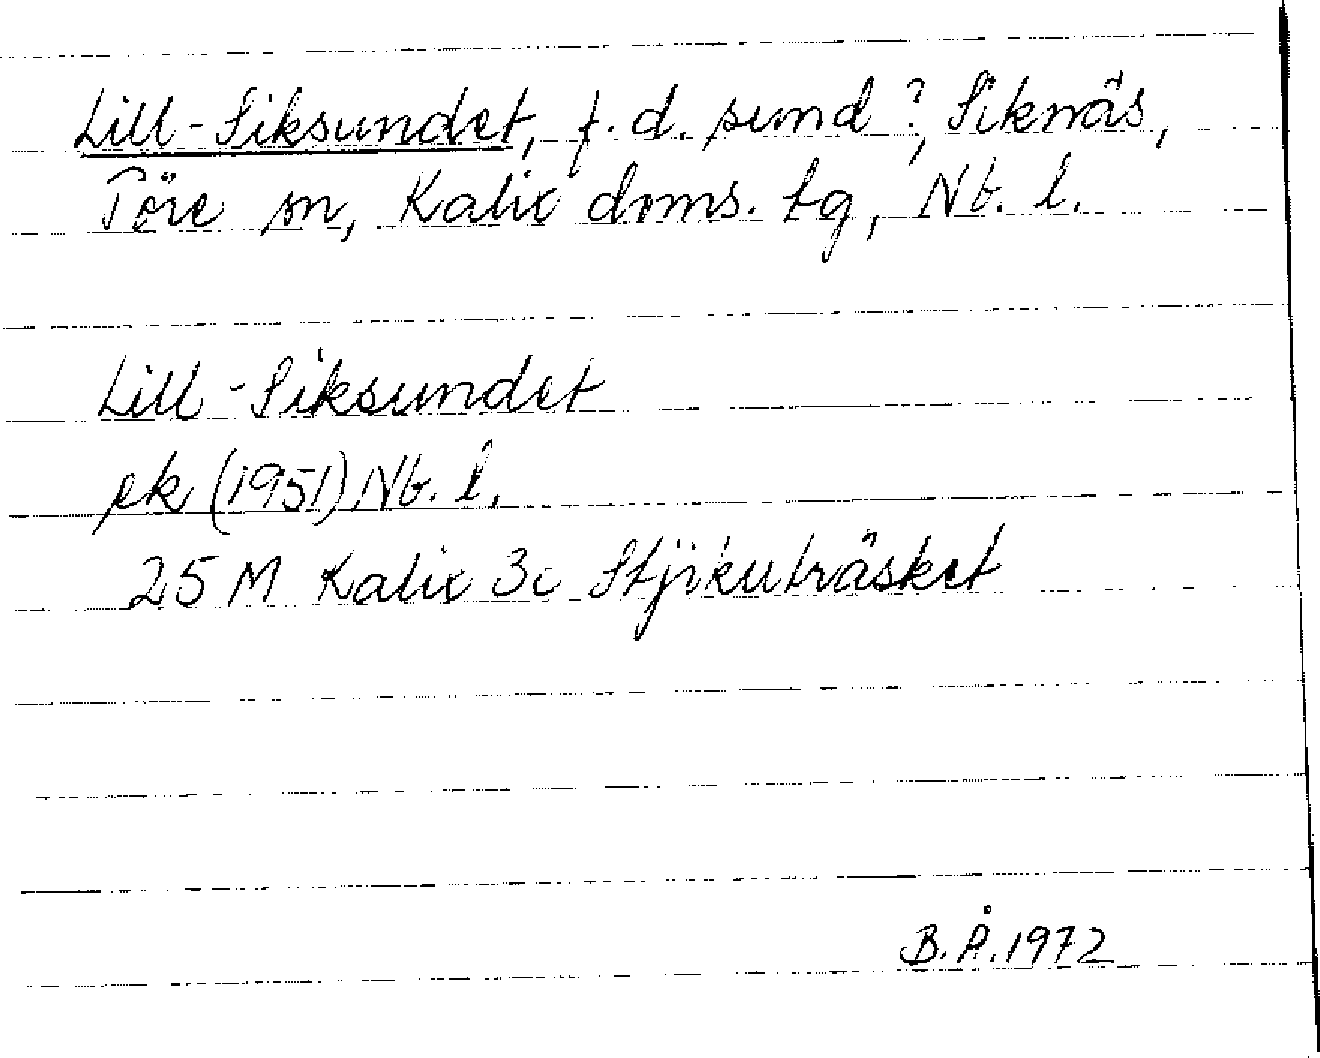 Lill-Siksundet, f.d. sund?, Siknäs,
Töre sn, Kalix doms. tg, Nb. l.
Lill-Siksundet
ek (1951) Nb. l.
25 M Kalix 3c Stjrkuträsket
B.Å. 1972